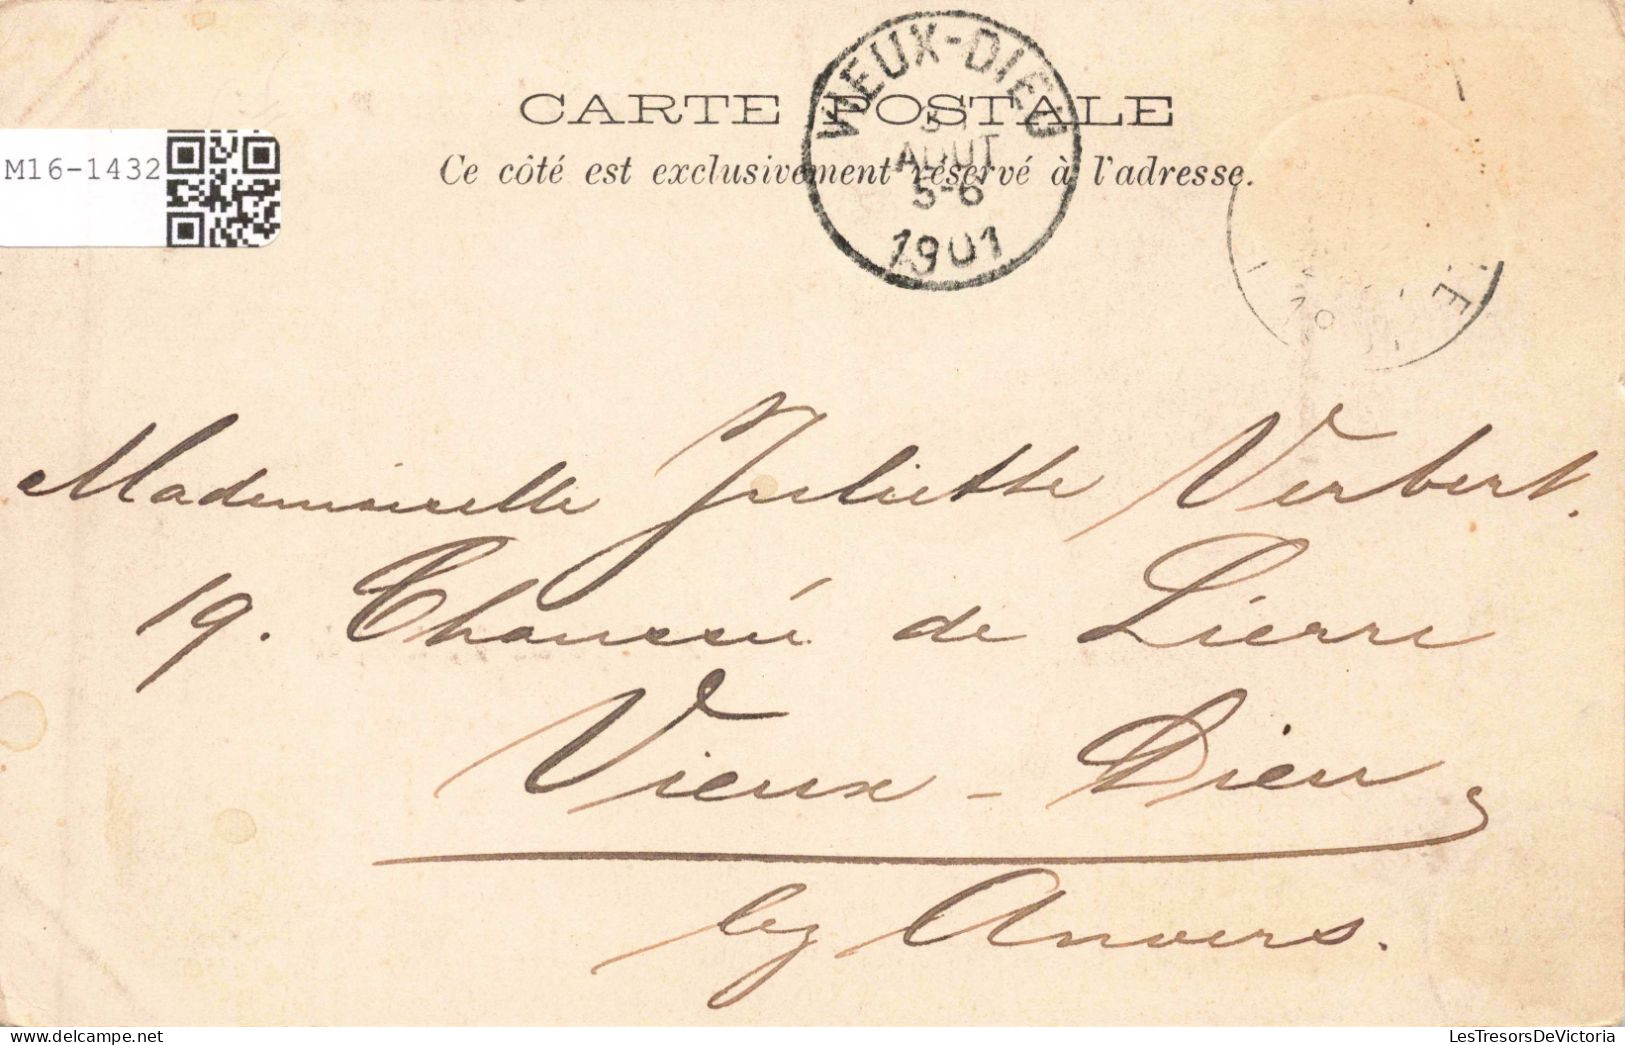 VIEUX-DIEU
CARTE POSTALE
AOUT
5-6
1901
Ce côté est exclusivement réservé à l'adresse.
M16-1432
Mademoiselle Juliette Verbert.
19. Chaussée de Lierre
Vieux-Dieu,
lez Anvers.
LesTresorsDeVictoria